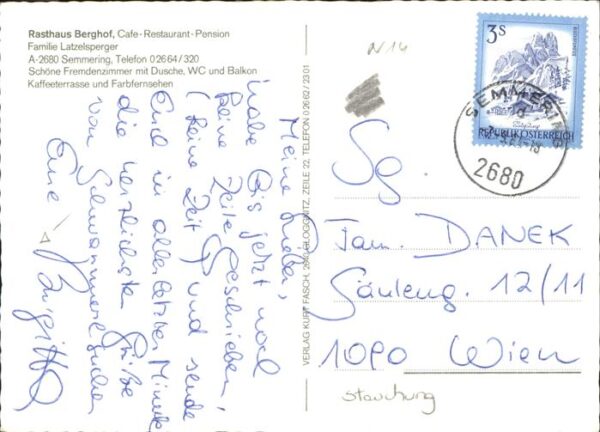 Rasthaus Berghof, Cafe-Restaurant-Pension
Familie Latzelsperger
A-2680 Semmering, Telefon 02664/320
Schöne Fremdenzimmer mit Dusche, WC und Balkon
Kaffeeterrasse und Farbfernsehen
Meine Lieben,
Habe bis jetzt noch
keine Zeile geschrieben,
(keine Zeit) und sende
Euch in allerletzter Minute
die herzlichsten Grüße
vom Schwammerlsuchen
Eure
Brigitte
VERLAG KURT FASCH, 2640 GLOGGNITZ, ZEILE 22, TELEFON 0 26 62 / 23 01
N 14
3S
REPUBLIK ÖSTERREICH
SEMMERING
2680
Sg.
Fam. DANEK
Säuleng. 12/11
1090 Wien